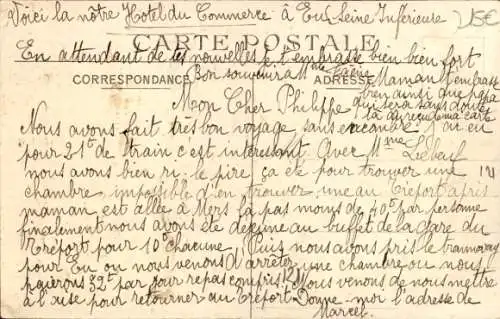 Voici la nôtre Hotel du Commerce à Eu Seine Inférieure
15€
CARTE POSTALE
En attendant de tes nouvelles je t'embrasse bien bien fort
CORRESPONDANCE
ADRESSE
Bon souvenir à Mme
Maman t'embrasse
bien ainsi que papa
qui sera sans doute
là au reçu de ma carte
Mon Cher Philippe
Nous avons fait très bon voyage sans encombre j'ai eu
pour 21f de train c'est intéressant Avec Mme
nous avons bien ri. le pire ça été pour trouver une
chambre, impossible d'en trouver une au Tréport après
maman est allée à Mers là pas moins de 40f par personne
finalement nous avons été déjeuné au buffet de la Gare du
Tréport pour 10f chacune. Puis nous avons pris le tramway
pour Eu ou nous venons d'arrêter une chambre ou nous
paierons 32f par jour repas compris. Nous venons de nous mettre
à l'aise pour retourner au Tréport Donne-moi l'adresse de
Marcel.